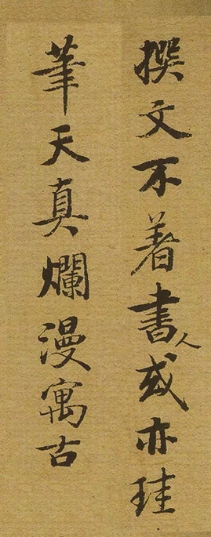 撰文不著書人或亦珪
筆天真爛漫寓古